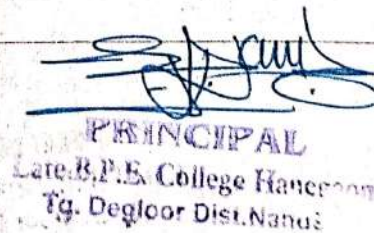 PRINCIPAL
Late.B.P.E. College Hanegaon
Tq. Degloor Dist.Nanded